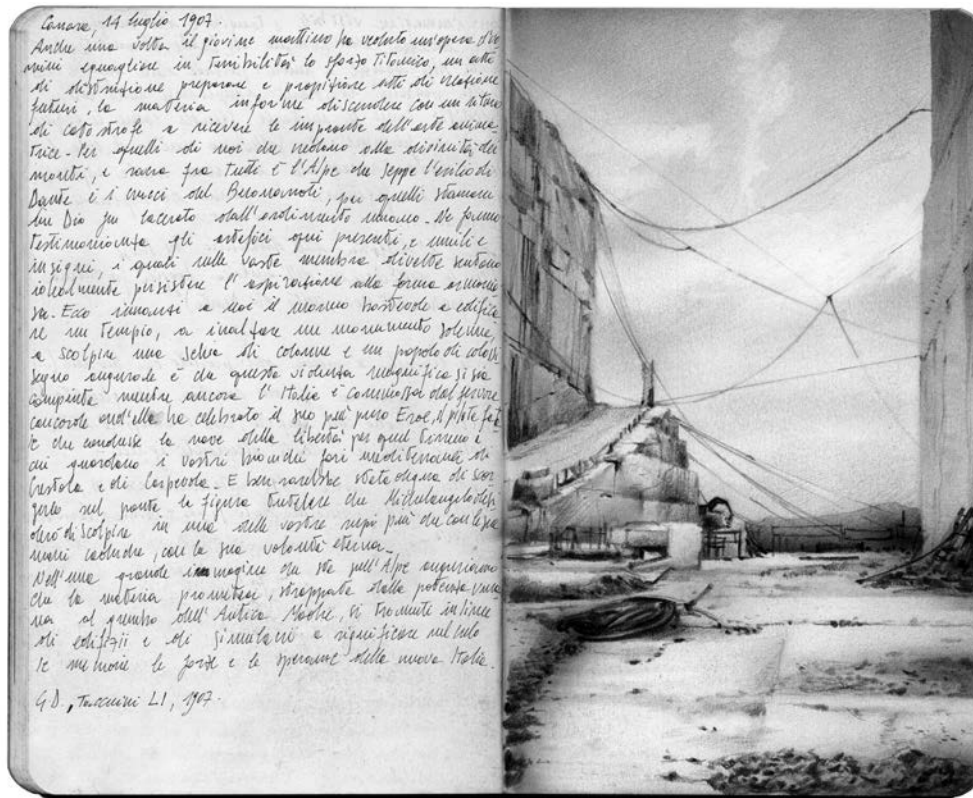 Carrara, 14 luglio 1907.
Anche una volta il giovine mattino ha veduto un'opera d'uo
mini eguagliare in terribilità lo sforzo titanico, un atto
di distruzione preparare e propiziare atti di creazione
futuri, la materia informe discendere con un
di catastrofe a ricevere le impronte dell'arte anima
trice. Per quelli di noi che credono alla divinità dei
monti, e sacra fra tutti è l'Alpe che seppe l'esilio di
Dante e i crucci del Buonarroti, per quelli stamane
un Dio fu lacerato dall'ardimento umano. Ne fanno
testimonianza gli artefici qui presenti, e umili e
insigni, i quali nelle vaste membra divelte sentono
idealmente persistere l'aspirazione alla forma armonio
sa. Ecco innanzi a noi il marmo bastevole a edifica
re un tempio, a inalzare un monumento solenne,
a scolpire una selva di colonne e un popolo di colossi
segno augurale è che questa violenza magnifica si sia
compiuta mentre ancora l'Italia è commossa dal fervore
concorde ond'ella ha celebrato il suo più puro Eroe, il
che condusse la nave della libertà per quel Tirreno
cui guardano i vostri bianchi fari mediterranei di
e di . E ben sarebbe stata degna di scor
gerlo sul ponte la figura tutelare che Michelangelo desi
derò di scolpire in una delle vostre rupi più che con le sue
mani caduche, con la sua volontà eterna.
Nell'una grande immagine che sta sull'Alpe auguriamo
che la materia prometèa, strappata dalla potenza uma
na al grembo dell'Antica Madre, si tramuti in linee
di edifizii e di simulacri a significare nel
le memorie le forze e le speranze della nuova Italia.
G.D., Taccuini LI, 1907.